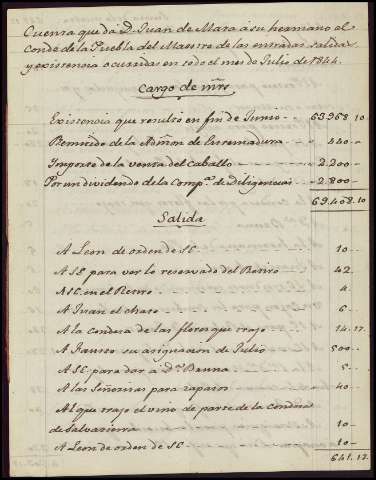 Cuenta que dá D. Juan de Mata á su hermano el
Conde de la Puebla del Maestre de las entradas salidas
y existencia ocurridas en todo el mes de Julio de 1844.
Cargo de mrs.
Existencia que resultó en fin de Junio 63.968..10
Remitido de la Admon de Estremadura 440
Importe de la venta del Caballo 2.200
Por un dividendo de la Comp.ª de Diligencias 2.800
69.408.10
Salida
A Leon de orden de SE 10
A SE para ver lo reservado del Retiro 42
A SE en el Retiro 4
A Juan el chato 6
A la condesa de las flores que trajo 14..17
A Fausto su asignacion de Julio 500
A SE para dar a D.ª 5
A las Señoritas para zapatos 40
Al que trajo el vino de parte de la Condesa
de Salvatierra 10
A Leon de orden de SE 10
641..17